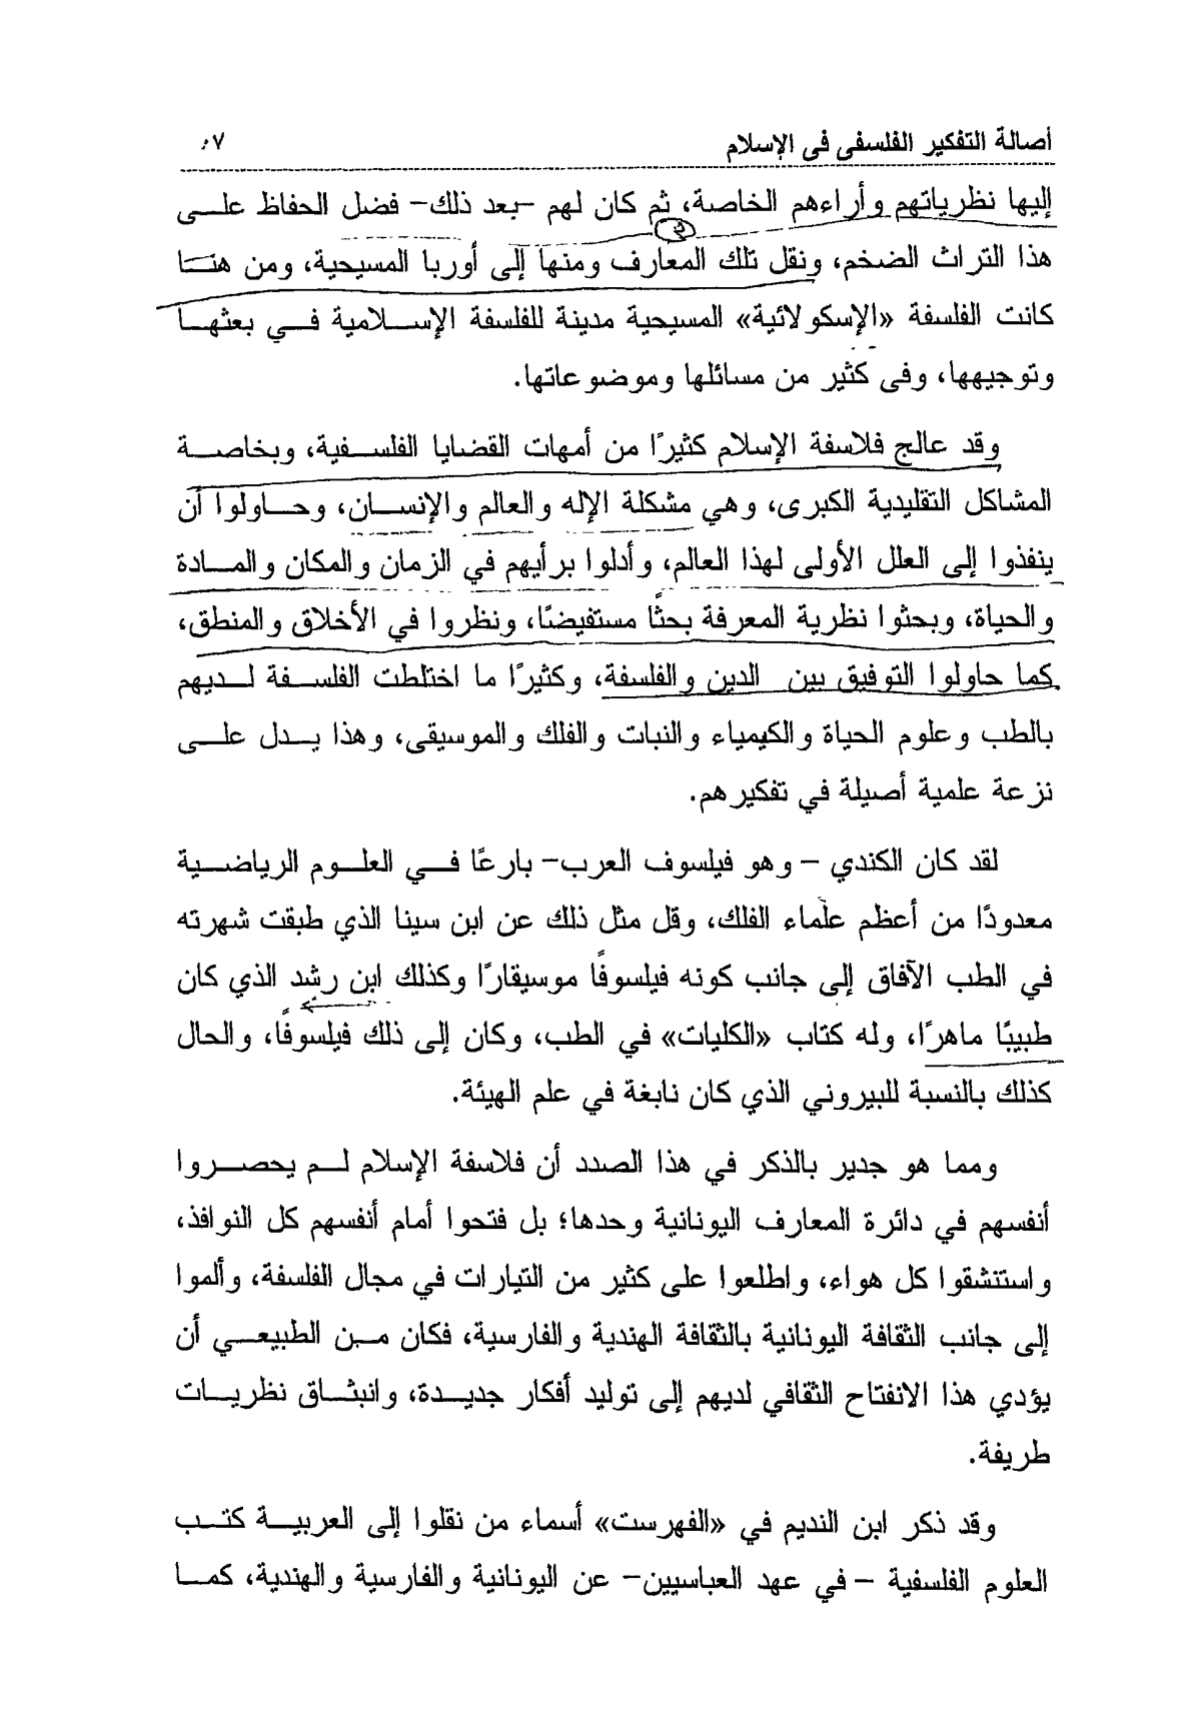 أصالة التفكير الفلسفى فى الإسلام
إليها نظرياتهم وأراءهم الخاصة، ثم كان لهم -بعد ذلك- فضل الحفاظ على
هذا التراث الضخم، ونقل تلك المعارف ومنها إلى أوربا المسيحية، ومن هنا
كانت الفلسفة «الإسكولائية» المسيحية مدينة للفلسفة الإسلامية في بعثها
وتوجيهها، وفى كثير من مسائلها وموضوعاتها.
وقد عالج فلاسفة الإسلام كثيرًا من أمهات القضايا الفلسفية، وبخاصة
المشاكل التقليدية الكبرى، وهي مشكلة الإله والعالم والإنسان، وحاولوا أن
ينفذوا إلى العلل الأولى لهذا العالم، وأدلوا برأيهم في الزمان والمكان والمادة
والحياة، وبحثوا نظرية المعرفة بحثًا مستفيضًا، ونظروا في الأخلاق والمنطق،
كما حاولوا التوفيق بين الدين والفلسفة، وكثيرًا ما اختلطت الفلسفة لديهم
بالطب وعلوم الحياة والكيمياء والنبات والفلك والموسيقى، وهذا يدل على
نزعة علمية أصيلة في تفكيرهم.
لقد كان الكندي – وهو فيلسوف العرب– بارعًا في العلوم الرياضية
معدودًا من أعظم علماء الفلك، وقل مثل ذلك عن ابن سينا الذي طبقت شهرته
في الطب الآفاق إلى جانب كونه فيلسوفًا موسيقارًا وكذلك ابن رشد الذي كان
طبيبًا ماهرًا، وله كتاب «الكليات» في الطب، وكان إلى ذلك فيلسوفًا، والحال
كذلك بالنسبة للبيروني الذي كان نابغة في علم الهيئة.
ومما هو جدير بالذكر في هذا الصدد أن فلاسفة الإسلام لم يحصروا
أنفسهم في دائرة المعارف اليونانية وحدها؛ بل فتحوا أمام أنفسهم كل النوافذ،
واستنشقوا كل هواء، واطلعوا على كثير من التيارات في مجال الفلسفة، وألموا
إلى جانب الثقافة اليونانية بالثقافة الهندية والفارسية، فكان من الطبيعي أن
يؤدي هذا الانفتاح الثقافي لديهم إلى توليد أفكار جديدة، وانبثاق نظريات
طريفة.
وقد ذكر ابن النديم في «الفهرست» أسماء من نقلوا إلى العربية كتب
العلوم الفلسفية – في عهد العباسيين– عن اليونانية والفارسية والهندية، كما